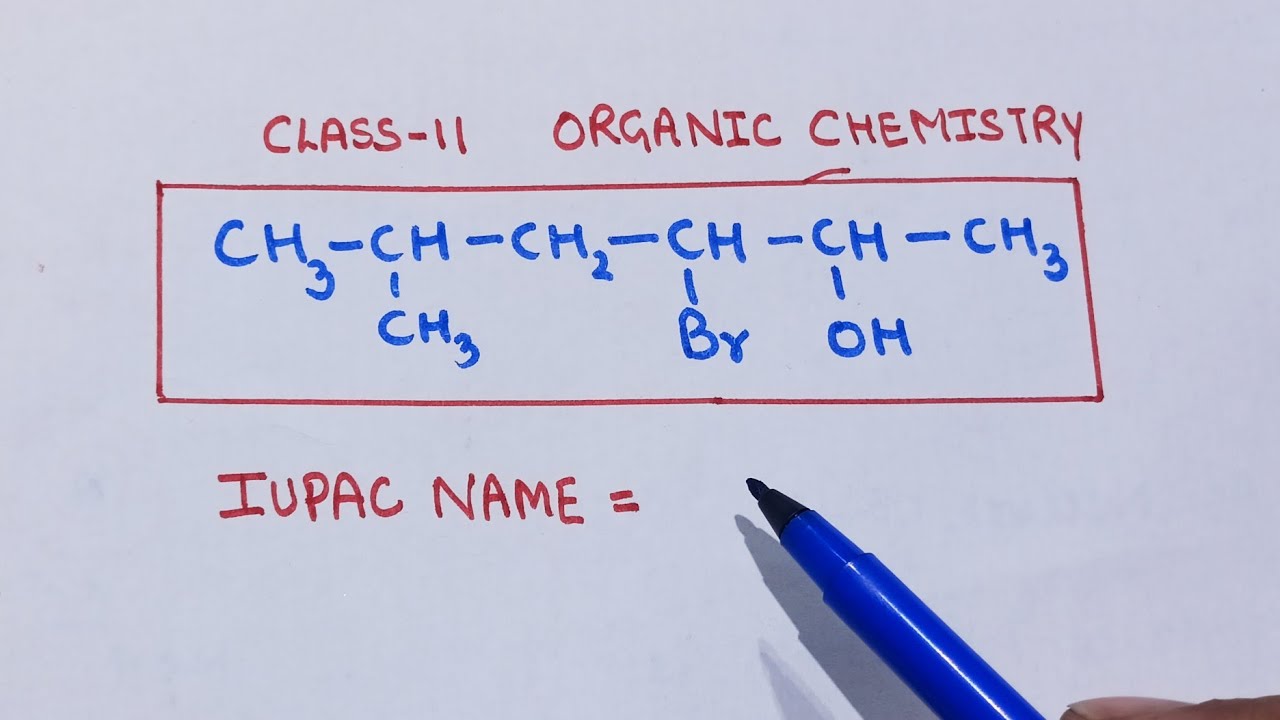 CLASS-11 ORGANIC CHEMISTRY
CH₃-CH-CH₂-CH-CH-CH₃
CH₃ Br OH
IUPAC NAME =